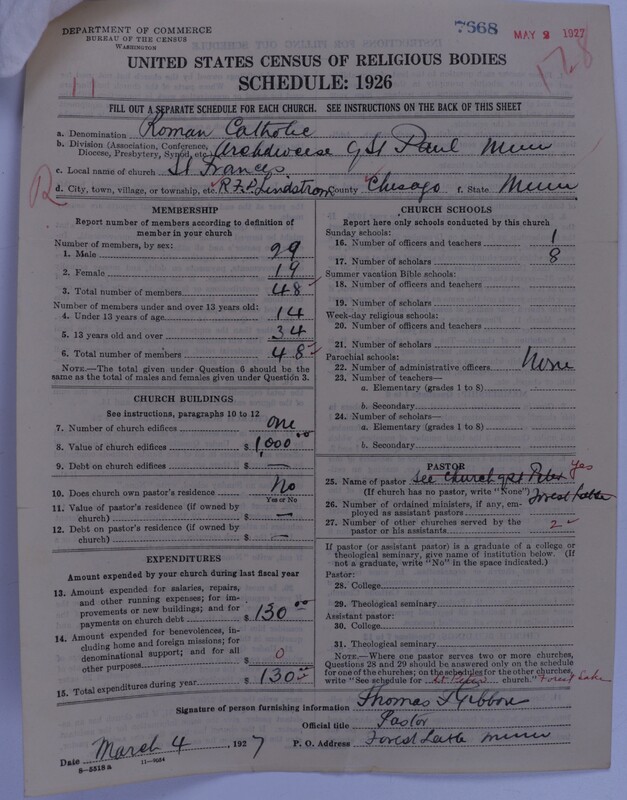 DEPARTMENT OF COMMERCE
BUREAU OF THE CENSUS
WASHINGTON
7668
MAY 2 1927
128
UNITED STATES CENSUS OF RELIGIOUS BODIES
SCHEDULE: 1926
11
FILL OUT A SEPARATE SCHEDULE FOR EACH CHURCH. SEE INSTRUCTIONS ON THE BACK OF THIS SHEET
a. Denomination Roman Catholic
b. Division (Association, Conference, Diocese, Presbytery, Synod, etc. Archdiocese of St Paul Minn
c. Local name of church St Francis
d. City, town, village, or township, etc. R.F.D. Lindstrom County Chisago f. State Minn
MEMBERSHIP
Report number of members according to definition of
member in your church
Number of members, by sex:
1. Male 29
2. Female 19
3. Total number of members 48
Number of members under and over 13 years old:
4. Under 13 years of age 14
5. 13 years old and over 34
6. Total number of members 48
NOTE.—The total given under Question 6 should be
same as the total of males and females given under Question 3.
CHURCH BUILDINGS
See instructions, paragraphs 10 to 12
7. Number of church edifices one
8. Value of church edifices $ 1,000 00
9. Debt on church edifices $ —
10. Does church own pastor's residence? No
Yes or No
11. Value of pastor's residence (if owned by
church) $ —
12. Debt on pastor's residence (if owned by
church) $ —
EXPENDITURES
Amount expended by your church during last fiscal year
13. Amount expended for salaries, repairs,
and other running expenses; for im-
provements or new buildings; and for
payments on church debt $ 130 00
14. Amount expended for benevolences, in-
cluding home and foreign missions; for
denominational support; and for all
other purposes $ 0
15. Total expenditures during year $ 130
CHURCH SCHOOLS
Report here only schools conducted by this church
Sunday schools:
16. Number of officers and teachers 1
17. Number of scholars 8
Summer vacation Bible schools:
18. Number of officers and teachers
19. Number of scholars
Week-day religious schools:
20. Number of officers and teachers
21. Number of scholars
Parochial schools:
22. Number of administrative officers None
23. Number of teachers—
a. Elementary (grades 1 to 8)
b. Secondary
24. Number of scholars—
a. Elementary (grades 1 to 8)
b. Secondary
PASTOR
25. Name of pastor See church of St Peter yes
(If church has no pastor, write "None") Forest Lake
26. Number of ordained ministers, if any, em-
ployed as assistant pastors
27. Number of other churches served by the
pastor or his assistants 2
If pastor (or assistant pastor) is a graduate of a college or
theological seminary, give name of institution below. (If
not a graduate, write "No" in the space indicated.)
Pastor:
28. College
29. Theological seminary
Assistant pastor:
30. College
31. Theological seminary
NOTE.—Where one pastor serves two or more churches,
Questions 28 and 29 should be answered only on the schedule
for one of the churches; on the schedules for the other churches,
write "See schedule for St Peter church." Forest Lake
Signature of person furnishing information Thomas F Gibbons
Official title Pastor
Date March 4 1927 P. O. Address Forest Lake Minn
8—5518a 11—9054